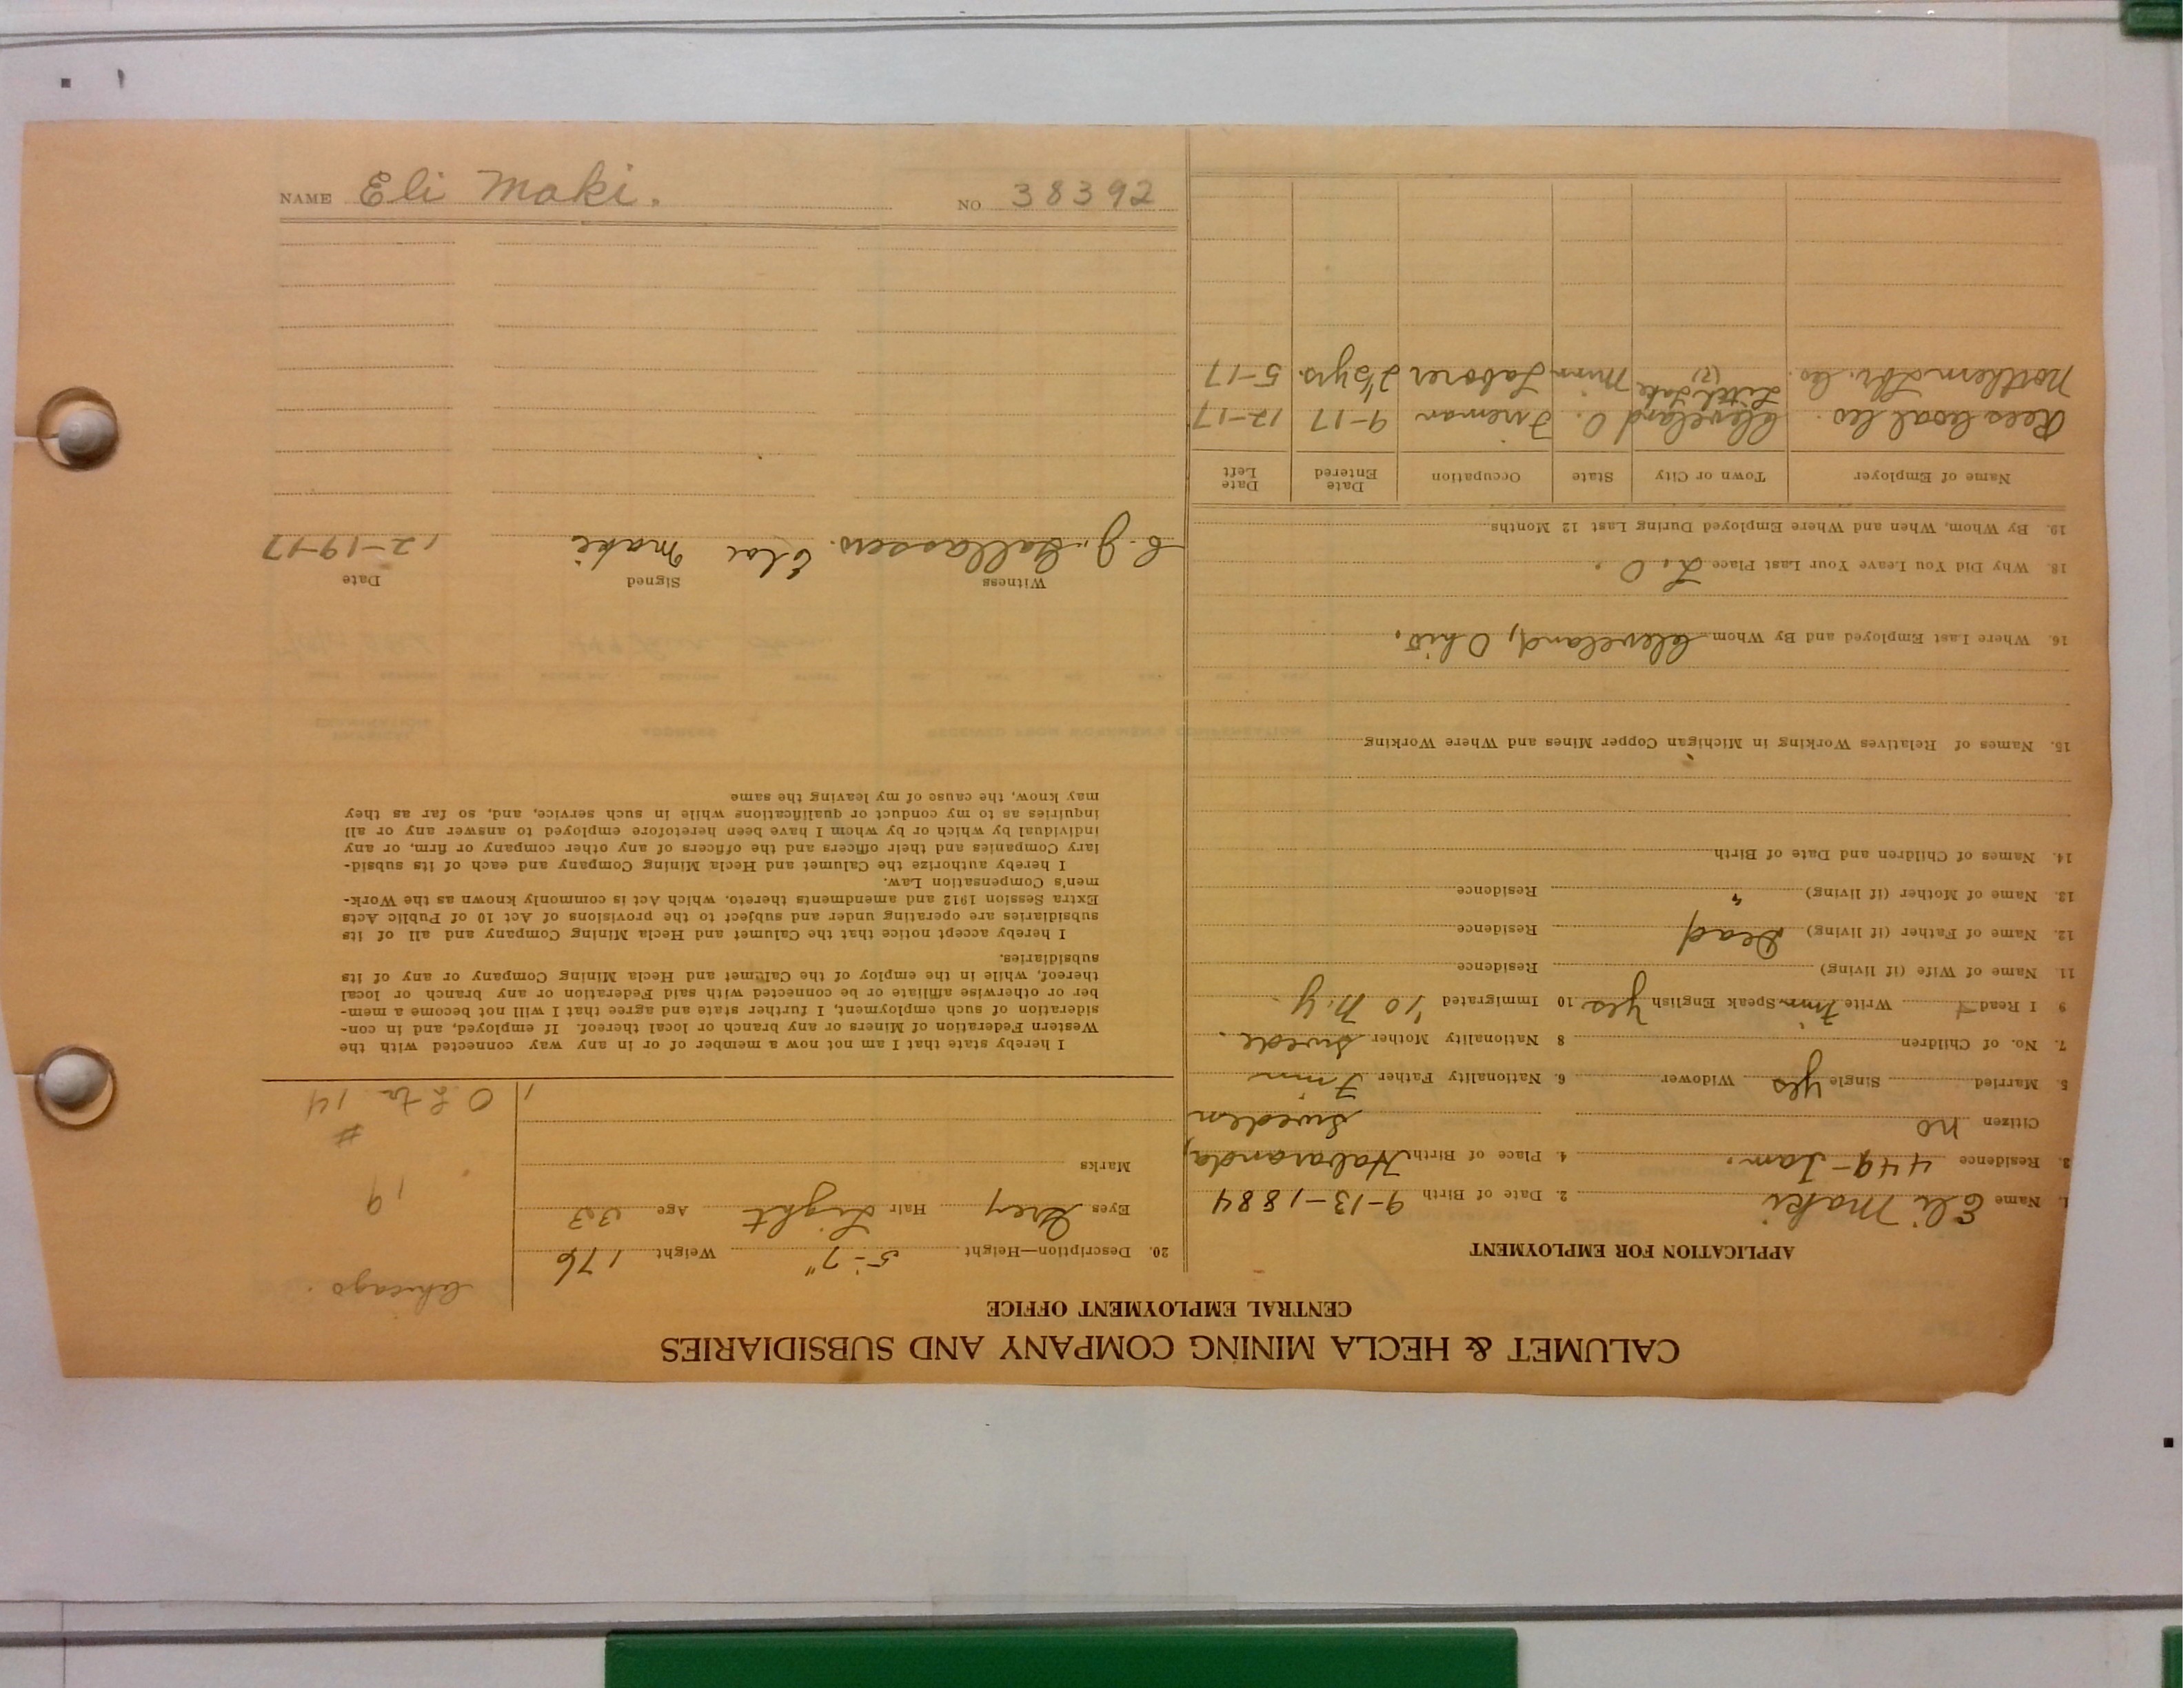 CALUMET & HECLA MINING COMPANY AND SUBSIDIARIES
CENTRAL EMPLOYMENT OFFICE
APPLICATION FOR EMPLOYMENT
1. Name Eli Maki 2. Date of Birth 9-13-1884
3. Residence 449-Tam. 4. Place of Birth Habaranda,
Citizen no Sweden
5. Married Single yes Widower 6. Nationality Father Finn
7. No. of Children 8 Nationality Mother Swede.
9 I Read Write Finn Speak English yes 10 Immigrated '10 N.Y.
11. Name of Wife (if living) Residence
12. Name of Father (if living) Dead Residence
13. Name of Mother (if living) " Residence
14. Names of Children and Date of Birth
15. Names of Relatives Working in Michigan Copper Mines and Where Working
16. Where Last Employed and By Whom Cleveland, Ohio.
18. Why Did You Leave Your Last Place L.O.
19. By Whom, When and Where Employed During Last 12 Months
Name of Employer Town or City State Occupation Date Entered Date Left
Rees Coal Co. Cleveland O. Fireman 9-17 12-17
Northern Lbr. Co. Little Lake (?) Minn Laborer 2½yrs. 5-17
20. Description—Height 5-7" Weight 176
Eyes Grey Hair Light Age 33
Marks
Chicago.
19
#
O L tr 14
I hereby state that I am not now a member of or in any way connected with the
Western Federation of Miners or any branch or local thereof. If employed, and in con-
sideration of such employment, I further state and agree that I will not become a mem-
ber or otherwise affiliate or be connected with said Federation or any branch or local
thereof, while in the employ of the Calumet and Hecla Mining Company or any of its
subsidiaries.
I hereby accept notice that the Calumet and Hecla Mining Company and all of its
subsidiaries are operating under and subject to the provisions of Act 10 of Public Acts
Extra Session 1912 and amendments thereto, which Act is commonly known as the Work-
men's Compensation Law.
I hereby authorize the Calumet and Hecla Mining Company and each of its subsid-
iary Companies and their officers and the officers of any other company or firm, or any
individual by which or by whom I have been heretofore employed to answer any or all
inquiries as to my conduct or qualifications while in such service, and, so far as they
may know, the cause of my leaving the same
Witness Signed Date
C.J. Gallassero. Eloi Maki 12-19-17
NAME Eli Maki. NO 38392